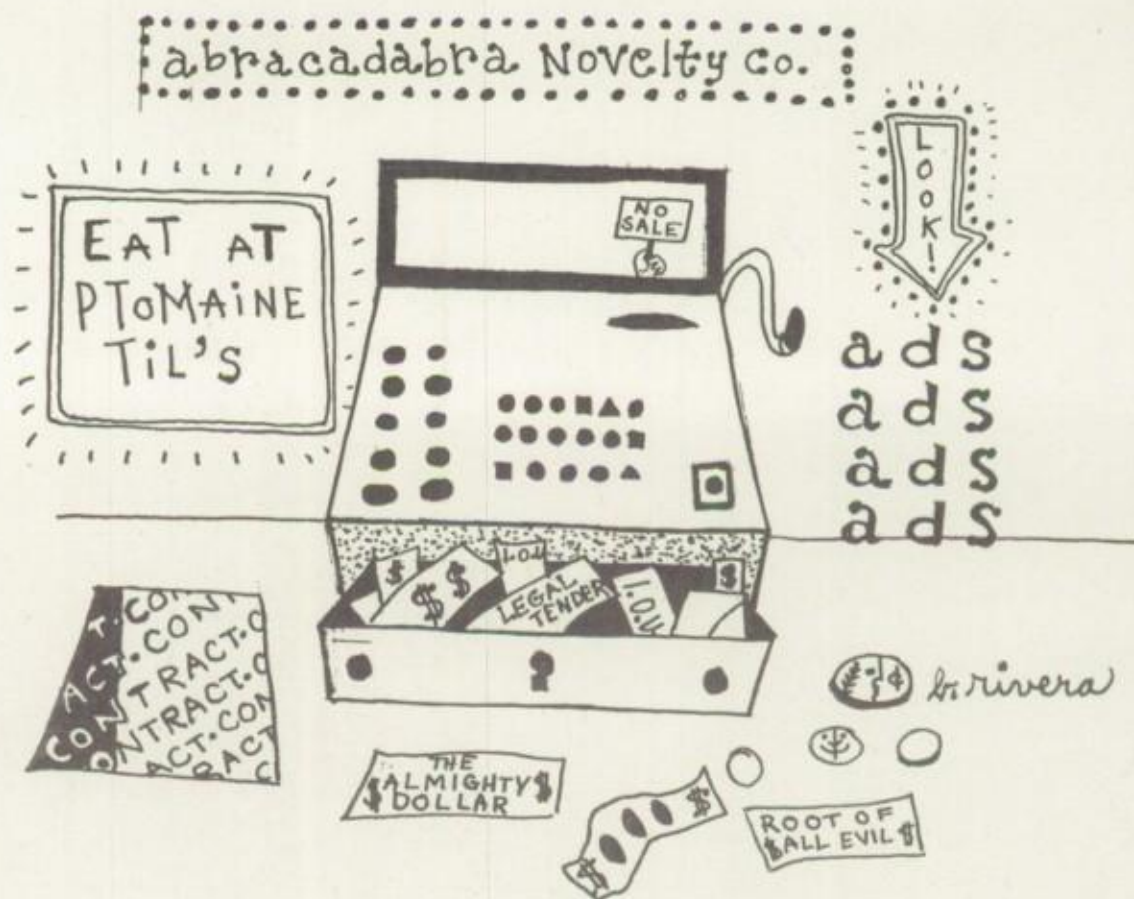 abracadabra Novelty co.
LOOK!
EAT AT
PTOMAINE
TIL'S
NO
SALE
ads
ads
ads
ads
$
$ $
I.O.U
LEGAL
TENDER
I.O.U
$
T.CON
ACT.CONT
CONTRACT.C
ONTRACT.C
ACT.CON
RACT
C
b. rivera
THE
$ALMIGHTY$
DOLLAR
$
$
ROOT OF
$ALL EVIL$